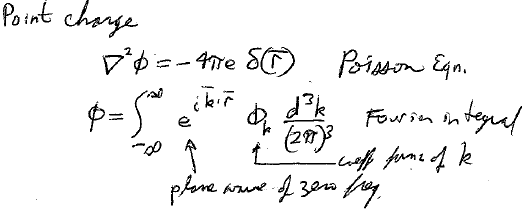 Point charge
∇²ϕ = -4πe δ(r̅) Poisson Eqn.
ϕ = ∫_{-∞}^{∞} e^{i k̅·r̅} ϕ_k d³k/(2π)³ Fourier integral
coeff func of k
plane wave of zero freq.